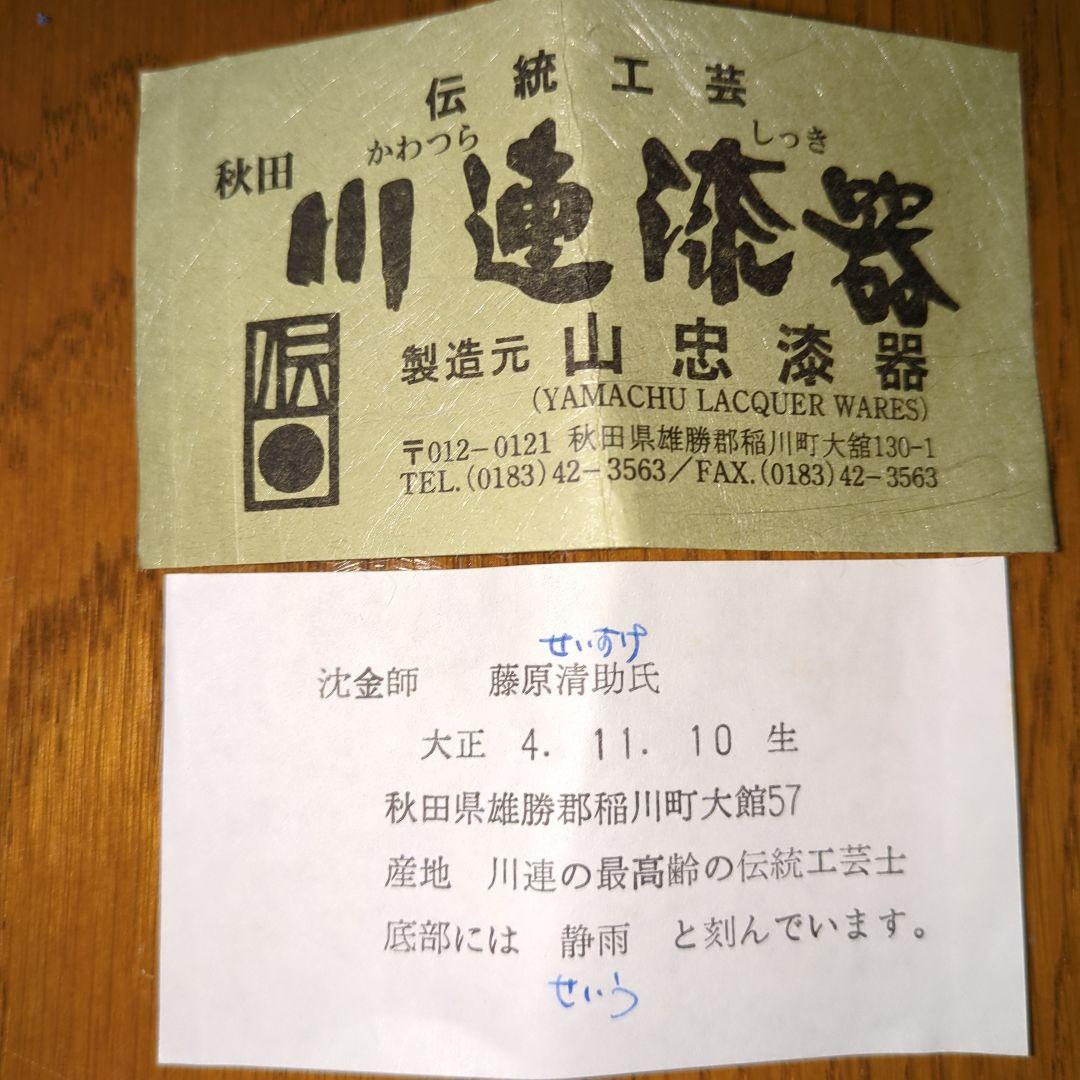 伝統工芸
かわつら しっき
秋田 川連漆器
伝
製造元 山忠漆器
(YAMACHU LACQUER WARES)
〒012-0121 秋田県雄勝郡稲川町大舘130-1
TEL.(0183)42-3563/FAX.(0183)42-3563
せいすけ
沈金師 藤原清助氏
大正 4. 11. 10 生
秋田県雄勝郡稲川町大館57
産地 川連の最高齢の伝統工芸士
底部には 静雨 と刻んでいます。
せいう